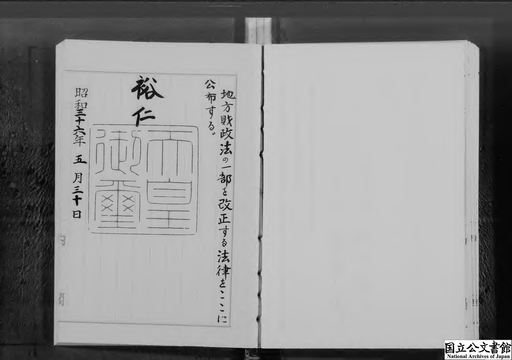 地方財政法の一部を改正する法律をここに
公布する。
裕仁
天皇
御璽
昭和三十六年五月三十日
国立公文書館
National Archives of Japan